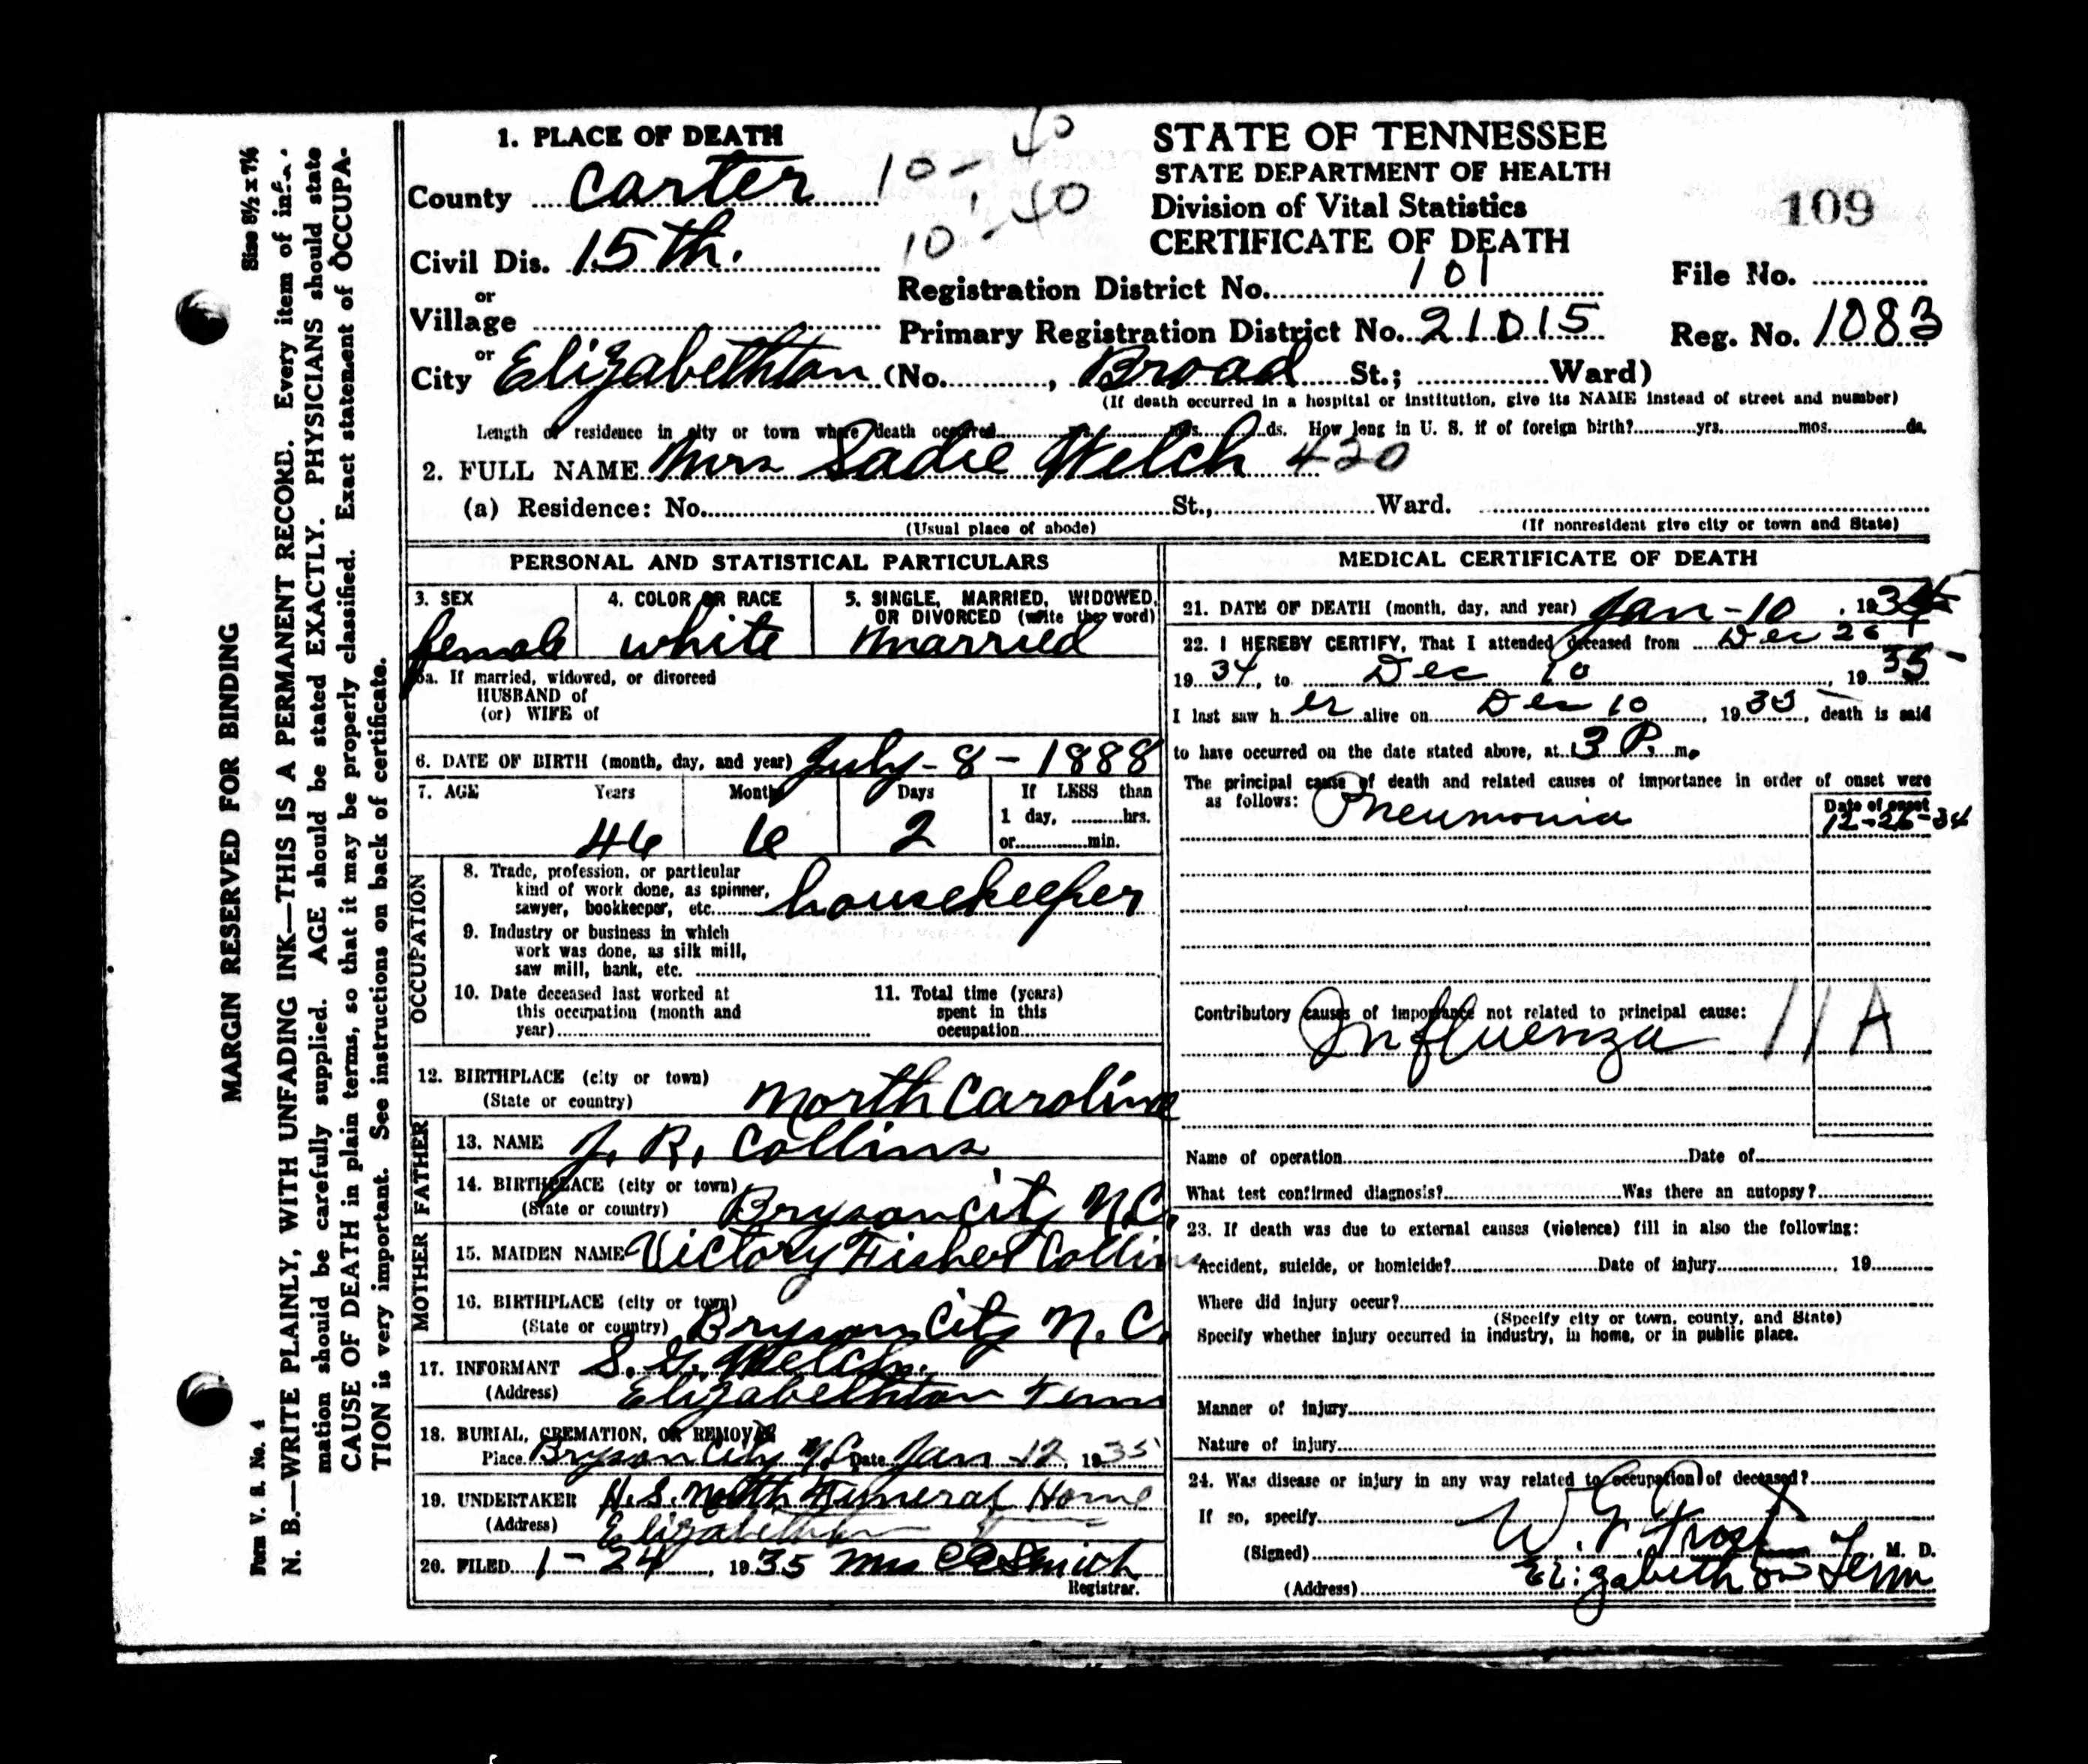 MARGIN RESERVED FOR BINDING
Size 8½ x 7⅛
N. B.—WRITE PLAINLY, WITH UNFADING INK—THIS IS A PERMANENT RECORD. Every item of infor-
mation should be carefully supplied. AGE should be stated EXACTLY. PHYSICIANS should state
CAUSE OF DEATH in plain terms, so that it may be properly classified. Exact statement of OCCUPA-
TION is very important. See instructions on back of certificate.
Form V. S. No. 4
1. PLACE OF DEATH
County Carter 10-40
10-40
Civil Dis. 15th.
or
Village
or
City Elizabethton (No. , Broad St.; Ward)
STATE OF TENNESSEE
STATE DEPARTMENT OF HEALTH
Division of Vital Statistics
CERTIFICATE OF DEATH
109
Registration District No. 101
File No.
Primary Registration District No. 21015
Reg. No. 1083
(If death occurred in a hospital or institution, give its NAME instead of street and number)
Length of residence in city or town where death occurred yrs. mos. ds. How long in U. S. if of foreign birth? yrs. mos. ds.
2. FULL NAME Mrs Sadie Welch 420
(a) Residence: No. St., Ward.
(Usual place of abode) (If nonresident give city or town and State)
PERSONAL AND STATISTICAL PARTICULARS
3. SEX
female
4. COLOR OR RACE
white
5. SINGLE, MARRIED, WIDOWED,
OR DIVORCED (write the word)
married
5a. If married, widowed, or divorced
HUSBAND of
(or) WIFE of
6. DATE OF BIRTH (month, day, and year) July-8-1888
7. AGE Years Months Days If LESS than
1 day, hrs.
46 6 2 or min.
OCCUPATION
8. Trade, profession, or particular
kind of work done, as spinner,
sawyer, bookkeeper, etc. housekeeper
9. Industry or business in which
work was done, as silk mill,
saw mill, bank, etc.
10. Date deceased last worked at
this occupation (month and
year)
11. Total time (years)
spent in this
occupation
12. BIRTHPLACE (city or town)
(State or country) North Carolina
FATHER
13. NAME J. R. Collins
14. BIRTHPLACE (city or town)
(State or country) Bryson City N.C.
MOTHER
15. MAIDEN NAME Victory Fisher Collins
16. BIRTHPLACE (city or town)
(State or country) Bryson City N.C.
17. INFORMANT S. G. Welch
(Address) Elizabethton Tenn
18. BURIAL, CREMATION, OR REMOVAL
Place Bryson City N.C. Date Jan-12, 1935
19. UNDERTAKER Funeral Home
(Address) Elizabethton
20. FILED 1-24, 1935 Mrs Smith
Registrar.
MEDICAL CERTIFICATE OF DEATH
21. DATE OF DEATH (month, day, and year) Jan-10, 193
22. I HEREBY CERTIFY, That I attended deceased from Dec 26
1934, to Dec 10, 1935
I last saw her alive on Dec 10, 1935, death is said
to have occurred on the date stated above, at 3 P. m.
The principal cause of death and related causes of importance in order of onset were
as follows: Date of onset
Pneumonia 12-26-34
Contributory causes of importance not related to principal cause:
Influenza 11A
Name of operation Date of
What test confirmed diagnosis? Was there an autopsy?
23. If death was due to external causes (violence) fill in also the following:
Accident, suicide, or homicide? Date of injury , 19
Where did injury occur?
(Specify city or town, county, and State)
Specify whether injury occurred in industry, in home, or in public place.
Manner of injury
Nature of injury
24. Was disease or injury in any way related to occupation of deceased?
If so, specify
(Signed) W. G. Frost M. D.
(Address) Elizabethton Tenn